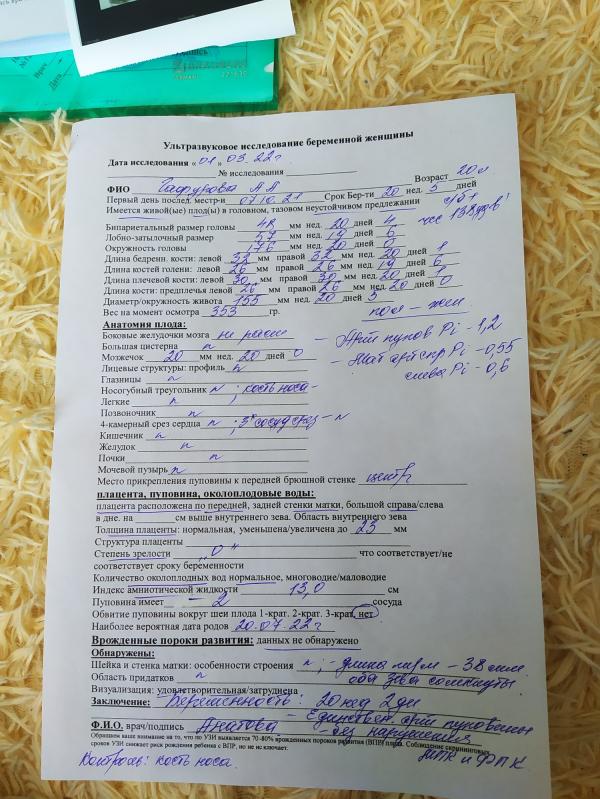 Ультразвуковое исследование беременной женщины
Дата исследования «01» 03.22г
№ исследования
ФИО Гафурова А А Возраст 20л
Первый день послед. мест-и 07.10.21 Срок Бер-ти 20 нед. 5 дней
Имеется живой(ые) плод(ы) в головном, тазовом неустойчивом предлежании с/б+
чсс 138уд/в1
Бипариетальный размер головы 48 мм нед. 20 дней 4
Лобно-затылочный размер 57 мм нед. 19 дней 6
Окружность головы 176 мм нед. 20 дней 0
Длина бедренн. кости: левой 32 мм правой 32 мм нед. 20 дней 1
Длина костей голени: левой 26 мм правой 26 мм нед. 19 дней 6
Длина плечевой кости: левой 30 мм правой 30 мм нед. 20 дней 1
Длина кости: предплечья левой 26 мм правой 26 мм нед. 20 дней 0
Диаметр/окружность живота 155 мм нед. 20 дней 5
Вес на момент осмотра 353 гр. пол – жен
Анатомия плода:
Боковые желудочки мозга не расш – Арт пупов Pi - 1,2
Большая цистерна n
Мозжечок 20 мм нед. 20 дней 0 – Мат арт спр Pi - 0,55
Лицевые структуры: профиль n слева Pi - 0,6
Глазницы n
Носогубный треугольник n ; кость носа -
Легкие n
Позвоночник n
4-камерный срез сердца n ; 3х сосуд срез - n
Кишечник n
Желудок n
Почки n
Мочевой пузырь n
Место прикрепления пуповины к передней брюшной стенке центр
плацента, пуповина, околоплодные воды:
плацента расположена по передней, задней стенки матки, большой справа/слева
в дне. на см выше внутреннего зева. Область внутреннего зева
Толщина плаценты: нормальная, уменьшена/увеличена до 23 мм
Структура плаценты
Степень зрелости „0“ что соответствует/не
соответствует сроку беременности
Количество околоплодных вод нормальное, многоводие/маловодие
Индекс амниотической жидкости 13,0 см
Пуповина имеет 2 сосуда
Обвитие пуповины вокруг шеи плода 1-крат. 2-крат. 3-крат, нет
Наиболее вероятная дата родов 20.07.22г
Врожденные пороки развития: данных не обнаружено
Обнаружены:
Шейка и стенка матки: особенности строения n ; - длина ш/м – 38 мм.
Область придатков n оба зева сомкнуты
Визуализация: удовлетворительная/затруднена
Заключение: Беременность: 20 нед 2дн
– Единствен арт пуповины
Ф.И.О. врач/подпись - без нарушения
Обращаем ваше внимание на то, что по УЗИ выявляется 70-80% врожденных пороков развития (ВПР) плода. Соблюдение скрининговых
сроков УЗИ снижает риск рождения ребенка с ВПР, но не исключает.
МПК и ФПК
Контроль: кость носа.